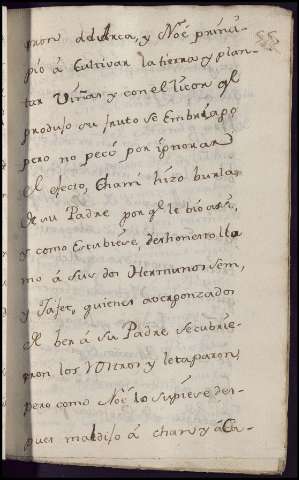 pron ddArca, y Noé prinsi-
pió á Cultivar la tierra y plan-
tar Viñas y con el licor ql
produjo su fruto se Embriago
pero no pecó por ignorar
el efecto, Cham hizo burla
de su Padre por ql le bio asi,
y como Estubiese deshonesto lla
mo á sus dos Hermanos Sem,
y Jafet, quienes avergonzados
de ber á su Padre se cubrie-
ron los Rostros y le taparon,
pero como Noé lo supiese des-
pues maldijo á cham y á Ca-